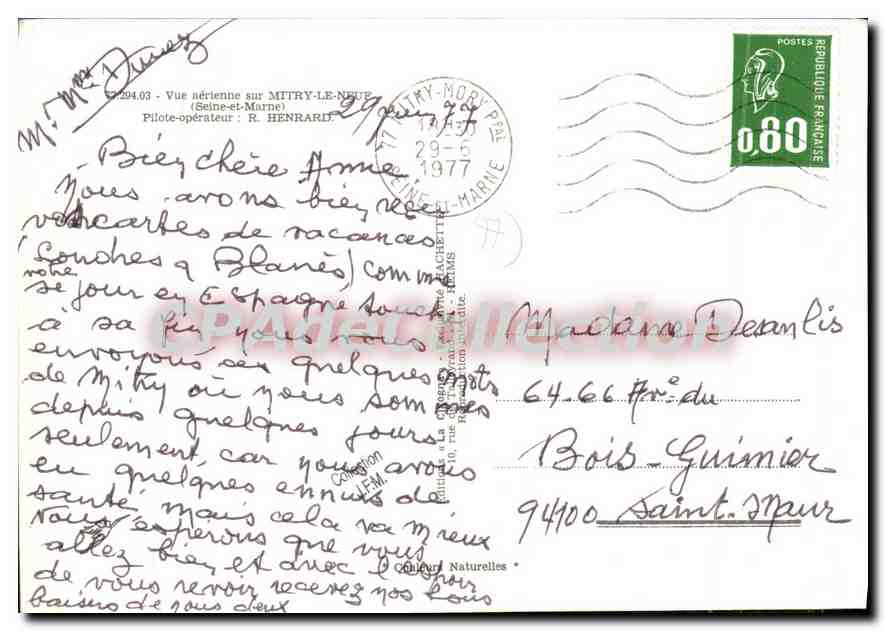 M. Mme Dunez
77.294.03 - Vue aérienne sur MITRY-LE-NEUF
(Seine-et-Marne)
Pilote-opérateur : R. HENRARD.
29 juin 77
77 MITRY-MORY Ppal
18H30
29-6
1977
SEINE-ET-MARNE
POSTES
REPUBLIQUE FRANÇAISE
0,80
Bien chère Anne
nous avons bien reçu
vos cartes de vacances
(Londres & Blanès) comme
votre
séjour en Espagne touche
à sa fin nous vous
envoyons ces quelques mots
de Mitry où nous sommes
depuis quelques jours
seulement, car nous avons
eu quelques ennuis de
santé, mais cela va mieux
nous espérons que vous
allez bien et avec l'espoir
de vous revoir recevez nos bons
baisers de nous deux
77
Editions « La Cigogne » - Exclusivité HACHETTE
10, rue de Talleyrand - REIMS
Reproduction interdite.
Collection
J.F.M.
* Couleurs Naturelles *
Madame Desanlis
64-66 Ave du
Bois-Guimier
94100 Saint-Maur
CPAdeCollection